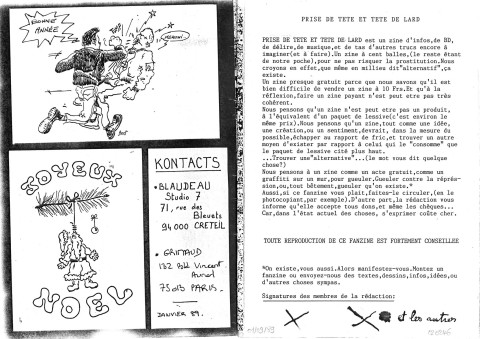 BONNE
ANNÉE
JOYEUX
NOEL
KONTACTS
• BLAUDEAU
Studio 7
71, rue des
Bleuets
94000 CRETEIL
• GRIMAUD
132 Bld Vincent
Auriol
75013 PARIS.
JANVIER 89.
PRISE DE TETE ET TETE DE LARD
PRISE DE TETE ET TETE DE LARD est un zine d'infos,de BD,
de délire,de musique,et de tas d'autres trucs encore à
imaginer(et à faire).Un zine à cent balles,(le reste étant
de notre poche),pour ne pas risquer la prostitution.Nous
croyons en effet,que même en milieu dit"alternatif",ça
existe.
Un zine presque gratuit parce que nous savons qu'il est
bien difficile de vendre un zine à 10 Frs.Et qu'à la
réflexion,faire un zine payant s'est peut etre pas très
cohérent.
Nous pensons qu'un zine n'est peut etre pas un produit,
à l'équivalent d'un paquet de lessive(c'est environ le
même prix).Nous pensons qu'un zine,tout comme une idée,
une création,ou un sentiment,devrait, dans la mesure du
possible,échapper au rapport de fric,et trouver un autre
moyen d'exister par rapport à celui qui le "consomme" que
le paquet de lessive cité plus haut.
...Trouver une"alternative"...(le mot vous dit quelque
chose?)
Nous pensons à un zine comme un acte gratuit,comme un
graffiti sur un mur,pour gueuler.Gueuler contre la répres-
sion,ou,tout bêtement,gueuler qu'on existe.*
Aussi,si ce fanzine vous plait,faites-le circuler,(en le
photocopiant,par exemple).D'autre part,la rédaction vous
informe qu'elle accepte tous dons,et même les chèques...
Car,dans l'état actuel des choses, s'exprimer coûte cher.
TOUTE REPRODUCTION DE CE FANZINE EST FORTEMENT CONSEILLEE
*On existe,vous aussi.Alors manifestez-vous.Montez un
fanzine ou envoyez-nous des textes,dessins,infos,idées,ou
d'autres choses sympas.
Signatures des membres de la rédaction:
et les autres